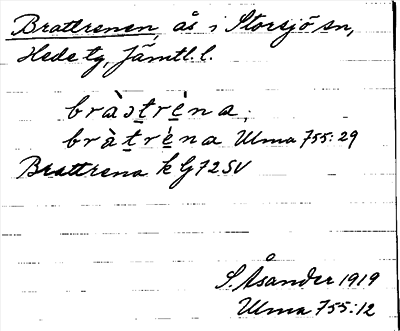 Brattrenen, ås i Storsjö sn,
Hede tg, Jämtl. l.
bràɔtrèna,
bràtrèna Ulma 755:29
Brattrena k G72SV
S. Åsander 1919
Ulma 755:12